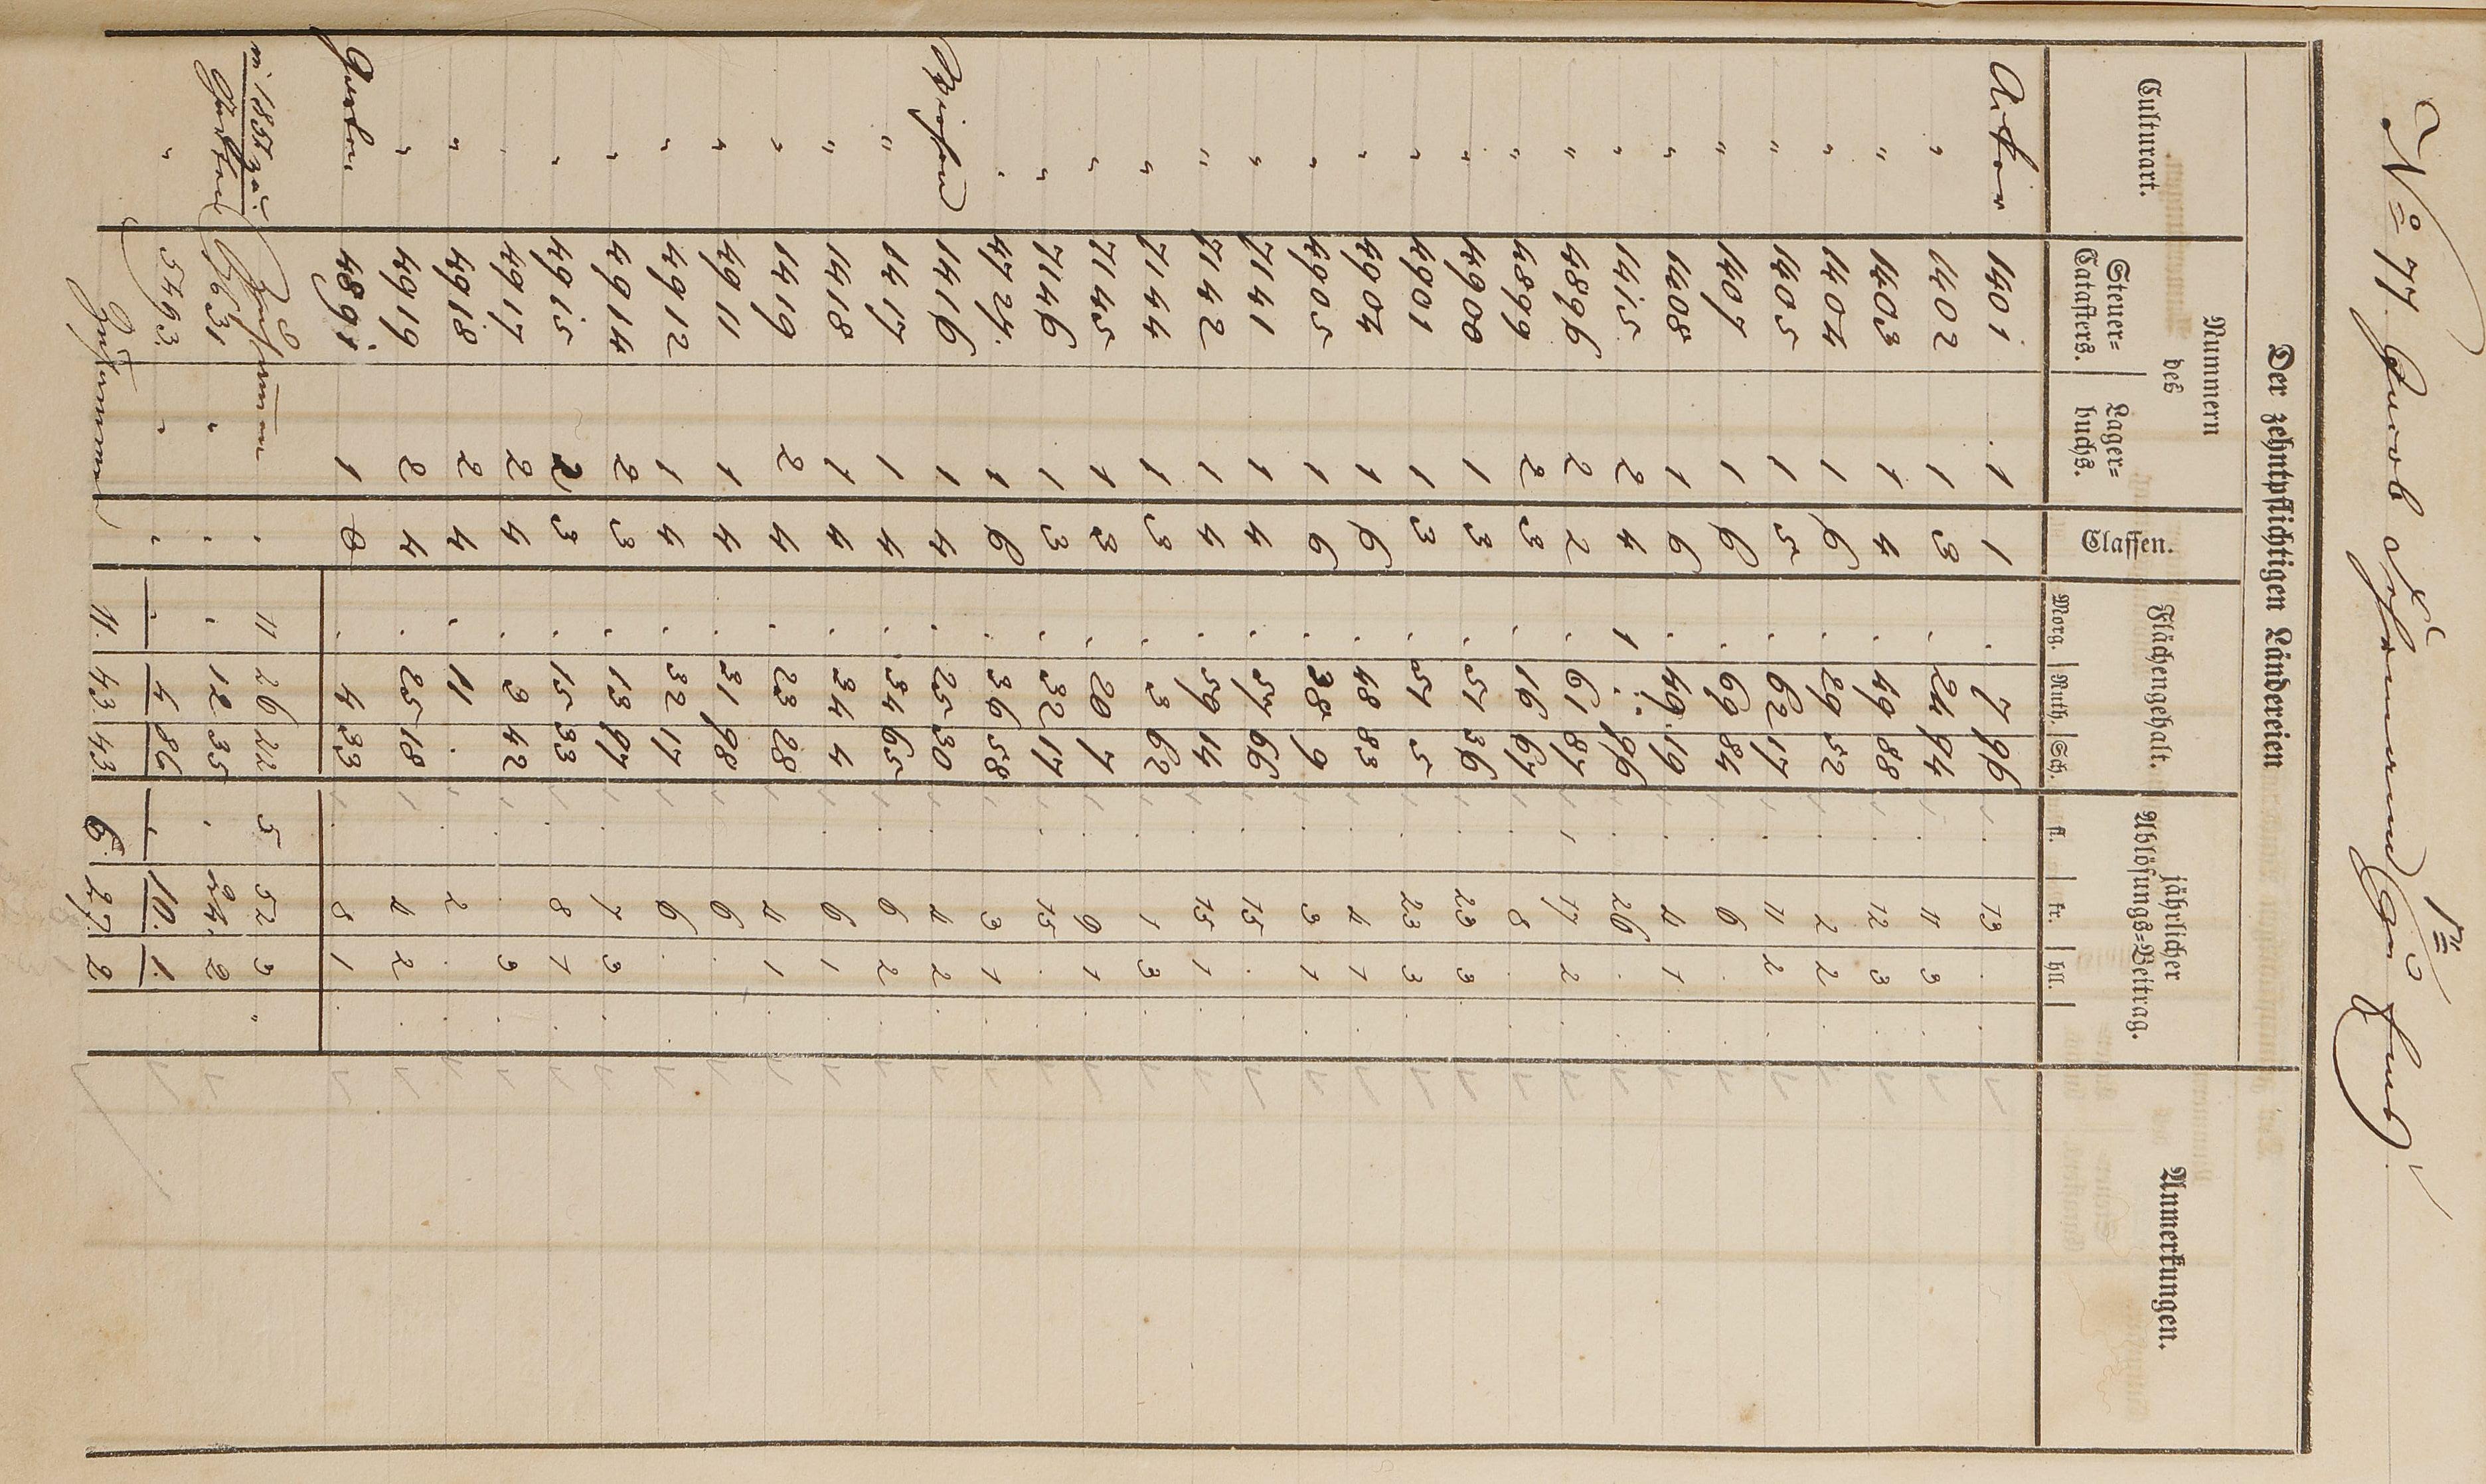 Nº 77. Jacob
Der zehntpflichtigen Ländereien
Culturart.
Nummern des
Steuer=Catasters.
Lager=buchs.
Classen.
Flächengehalt.
Morg. Ruth. Sch.
jährlicher Ablösungs=Beitrag.
fl. kr. hll.
Anmerkungen.
Acker 1401 1 1 . 7 96 . 13 .
" 1402 1 3 . 24 94 . 11 3
" 1403 1 4 . 49 88 . 12 3
" 1404 1 6 . 29 52 . 2 2
" 1405 1 5 . 62 17 . 11 2
" 1407 1 6 . 69 84 . 6 .
" 1408 1 6 . 49 19 . 4 1
" 1415 2 4 1 . 96 . 26 .
" 4896 2 2 . 61 87 1 17 2
" 4899 2 3 . 16 67 . 8 .
" 4900 1 3 . 51 36 . 23 3
" 4901 1 3 . 51 5 . 23 3
" 4904 1 6 . 48 83 . 4 1
" 4905 1 6 . 38 9 . 3 1
" 7141 1 4 . 57 66 . 15 .
" 7142 1 4 . 59 14 . 15 1
" 7144 1 3 . 3 62 . 1 3
" 7145 1 3 . 20 7 . 9 1
" 7146 1 3 . 32 17 . 15 .
" 4724 1 6 . 36 58 . 3 1
Wiesen 1416 1 4 . 25 30 . 4 2
" 1417 1 4 . 34 65 . 6 2
" 1418 1 4 . 34 4 . 6 1
" 1419 2 4 . 23 28 . 4 1
" 4911 1 4 . 31 98 . 6 .
" 4912 1 4 . 32 17 . 6 .
" 4914 2 3 . 13 97 . 7 3
" 4915 2 3 . 15 33 . 8 1
" 4917 2 4 . 3 42 . . 3
" 4918 2 4 . 11 . . 2 .
" 4919 2 4 . 25 18 . 4 2
Garten 4891 1 2 . 4 33 . 8 1
. 11 26 22 5 52 3
Garten 631 " . . 12 35 . 24 2
" 5493 " . . 4 86 . 10 1
. 11 43 43 6 27 2